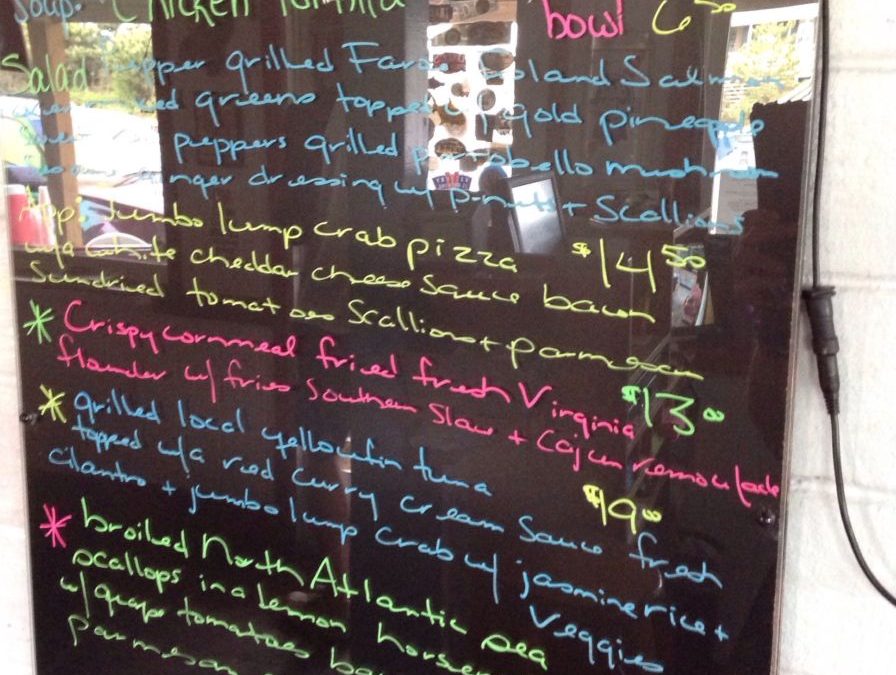 Soup: Chicken Tortilla
bowl 6 50
Salad pepper grilled Faroe Island Salmon
greens topped w/ gold pineapple
peppers grilled portobello mushroom
ginger dressing w/ p-nuts + Scallions
App: Jumbo lump crab pizza $14 50
w/a white cheddar cheese Sauce bacon
Sundried tomatoes Scallions + parmesan
* Crispy cornmeal fried fresh Virginia $13 00
flounder w/ fries Southern Slaw + Cajun remoulade
* grilled local yellowfin tuna $19 00
topped w/a red curry cream Sauce fresh
cilantro + jumbo lump crab w/ jasmine rice +
Veggies
* broiled North Atlantic sea
scallops in a lemon
w/ grape tomatoes
parmesan